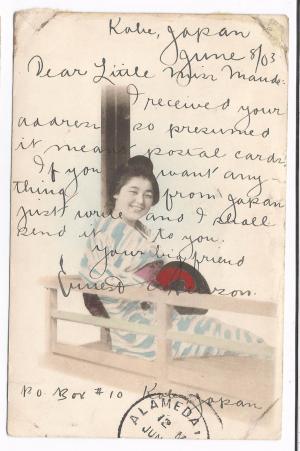 Kobe, Japan
June 8/03
Dear Little Miss Maude.
I received your
address so presumed
it meant postal cards.
If you want any-
thing from Japan
just write and I shall
send it to you.
Your big friend
Ernest
P.O. Box #10 Kobe, Japan
ALAMEDA
12 M
JUN